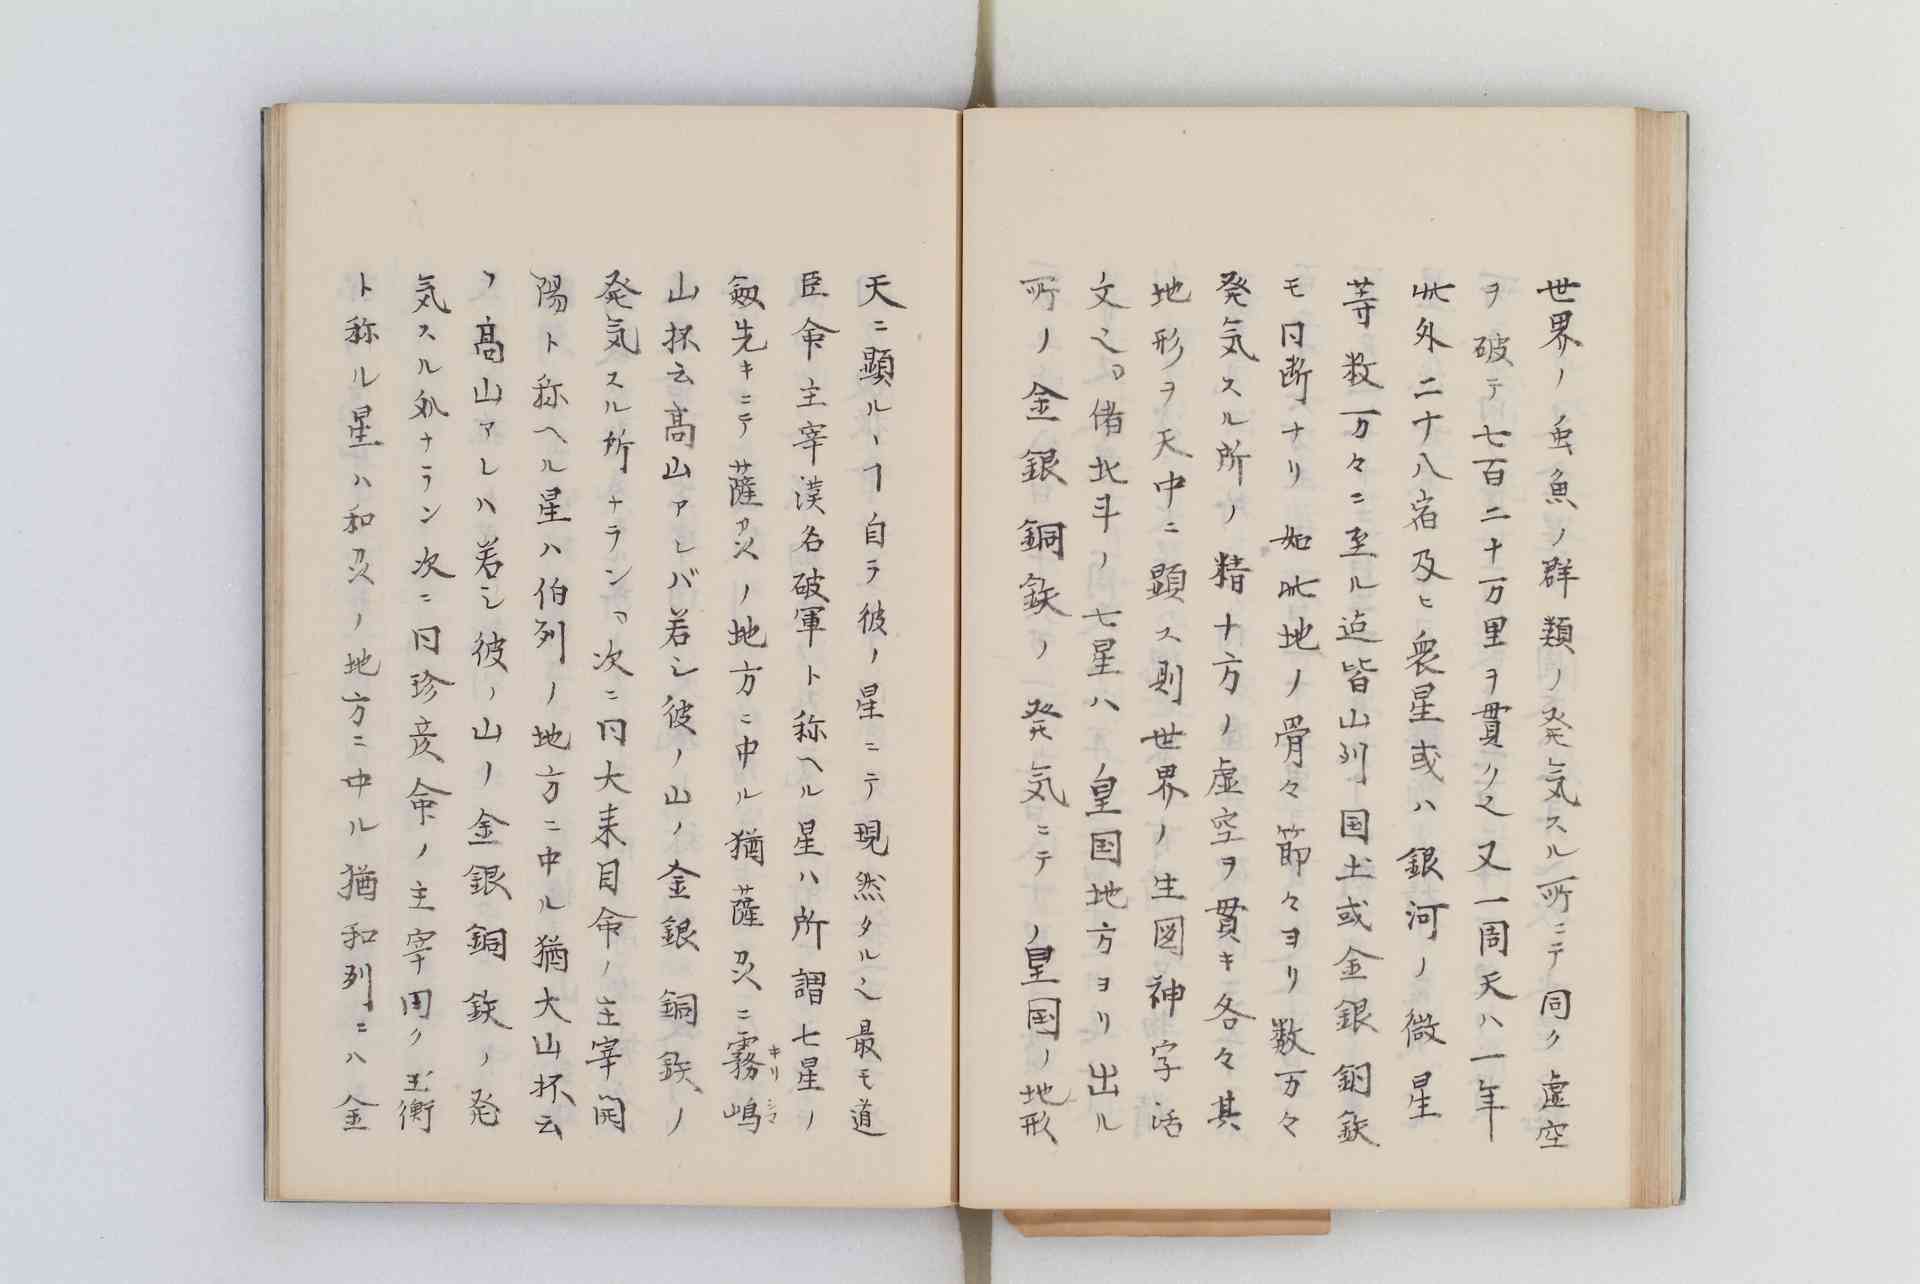 世界ノ虫魚ノ群類ノ発気スル所ニテ同ク虚空
ヲ破テ七百二十万里ヲ貫ク又一周天ハ一年
此外二十八宿及ヒ衆星或ハ銀河ノ微星
等数万々ニ至ル迠皆山川国土或金銀銅鉄
モ同断ナリ如此地ノ骨々節々ヨリ数万々
発気スル所ノ精十方ノ虚空ヲ貫キ各々其
地形ヲ天中ニ顕ス則世界ノ生図神字活
文也偖北斗ノ七星ハ皇国地方ヨリ出ル
所ノ金銀銅鉄ノ発気ニテ皇国ノ地形
天ニ顕ルヽヿ自ラ彼ノ星ニテ現然タル也最モ道
臣命主宰漢名破軍ト称ヘル星ハ所謂七星ノ
剱先キニテ薩州ノ地方ニ中ル猶薩州ニ霧嶋
キリシマ
山抔云高山アレバ若シ彼ノ山ノ金銀銅鉄ノ
発気スル所ナラン次ニ同大来目命ノ主宰開
陽ト称ヘル星ハ伯州ノ地方ニ中ル猶大山抔云
フ高山アレハ若シ彼ノ山ノ金銀銅鉄ノ発
気スル処ナラン次ニ同珍彦命ノ主宰同ク玉衡
ト称ル星ハ和州ノ地方ニ中ル猶和州ニハ金